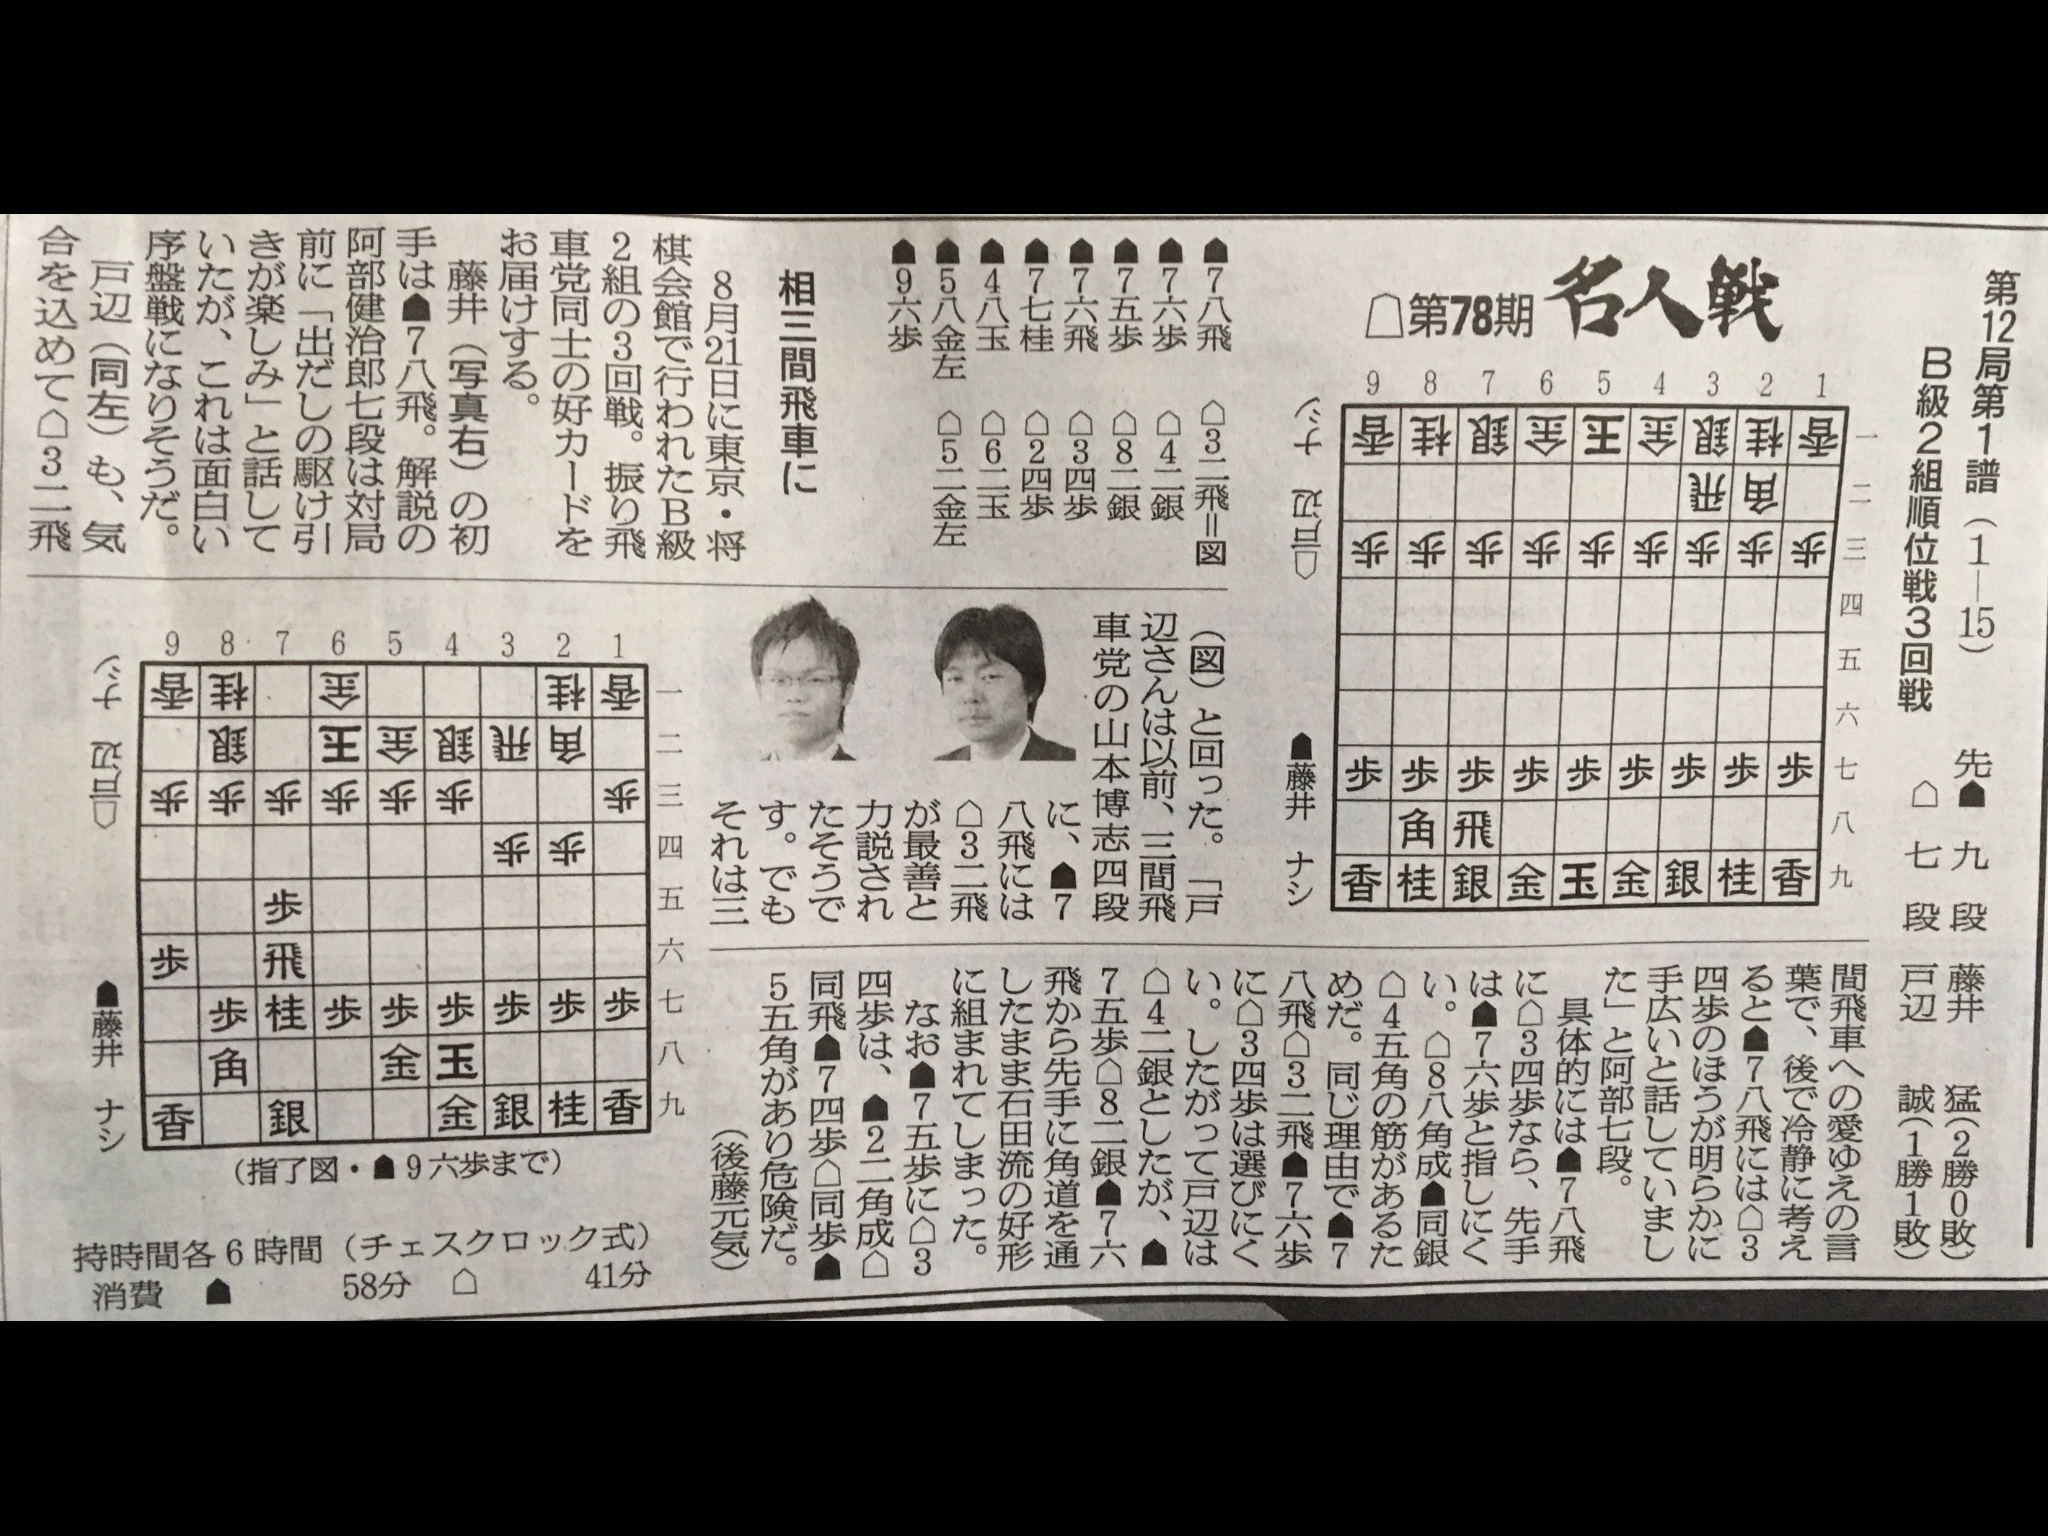 第12局第1譜(1―15)
B級2組順位戦3回戦
先☗九段 藤井 猛(2勝0敗)
☖七段 戸辺 誠(1勝1敗)
☖第78期 名人戦
9 8 7 6 5 4 3 2 1
香桂銀金王金銀桂香 一
飛角 二
歩歩歩歩歩歩歩歩歩 三
四
五
六
歩歩歩歩歩歩歩歩歩 七
角飛 八
香桂銀金玉金銀桂香 九
☖戸辺 ナシ
☗藤井 ナシ
☗7八飛 ☖3二飛=図
☗7六歩 ☖4二銀
☗7五歩 ☖8二銀
☗7六飛 ☖3四歩
☗7七桂 ☖2四歩
☗4八玉 ☖6二玉
☗5八金左 ☖5二金左
☗9六歩
相三間飛車に
8月21日に東京・将
棋会館で行われたB級
2組の3回戦。振り飛
車党同士の好カードを
お届けする。
藤井(写真右)の初
手は☗7八飛。解説の
阿部健治郎七段は対局
前に「出だしの駆け引
きが楽しみ」と話して
いたが、これは面白い
序盤戦になりそうだ。
戸辺(同左)も、気
合を込めて☖3二飛
(図)と回った。「戸
辺さんは以前、三間飛
車党の山本博志四段
に、☗7
八飛には
☖3二飛
が最善と
力説され
たそうで
す。でも
それは三
間飛車への愛ゆえの言
葉で、後で冷静に考え
ると☗7八飛には☖3
四歩のほうが明らかに
手広いと話していまし
た」と阿部七段。
具体的には☗7八飛
に☖3四歩なら、先手
は☗7六歩と指しにく
い。☖8八角成☗同銀
☖4五角の筋があるた
めだ。同じ理由で☗7
八飛☖3二飛☗7六歩
に☖3四歩は選びにく
い。したがって戸辺は
☖4二銀としたが、☗
7五歩☖8二銀☗7六
飛から先手に角道を通
したまま石田流の好形
に組まれてしまった。
なお☗7五歩に☖3
四歩は、☗2二角成☖
同飛☗7四歩☖同歩☗
5五角があり危険だ。
(後藤元気)
9 8 7 6 5 4 3 2 1
香桂金桂香 一
銀王金銀飛角 二
歩歩歩歩歩歩歩 三
歩歩 四
歩 五
歩飛 六
歩桂歩歩歩歩歩歩 七
角金玉 八
香銀金銀桂香 九
☖戸辺 ナシ
☗藤井 ナシ
(指了図・☗9六歩まで)
持時間各6時間(チェスクロック式)
消費 ☗58分 ☖41分